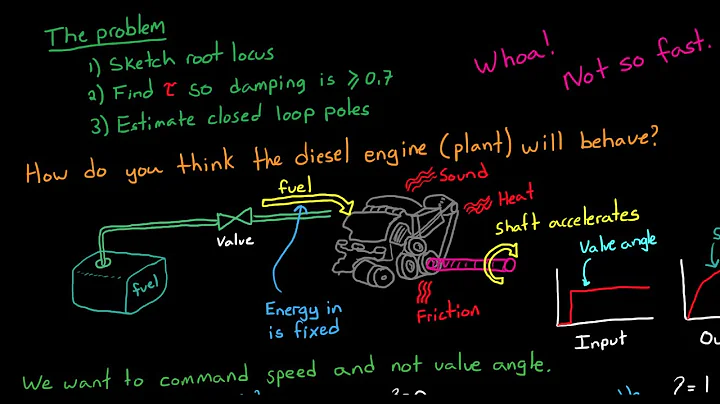 The problem
1) Sketch root locus
2) Find τ so damping is ≥ 0.7
3) Estimate closed loop poles
Whoa!
Not so fast.
How do you think the diesel engine (plant) will behave?
fuel
Sound
Heat
shaft accelerates
Value
Value angle
fuel
Energy in
is fixed
Friction
Input
We want to command speed and not value angle.